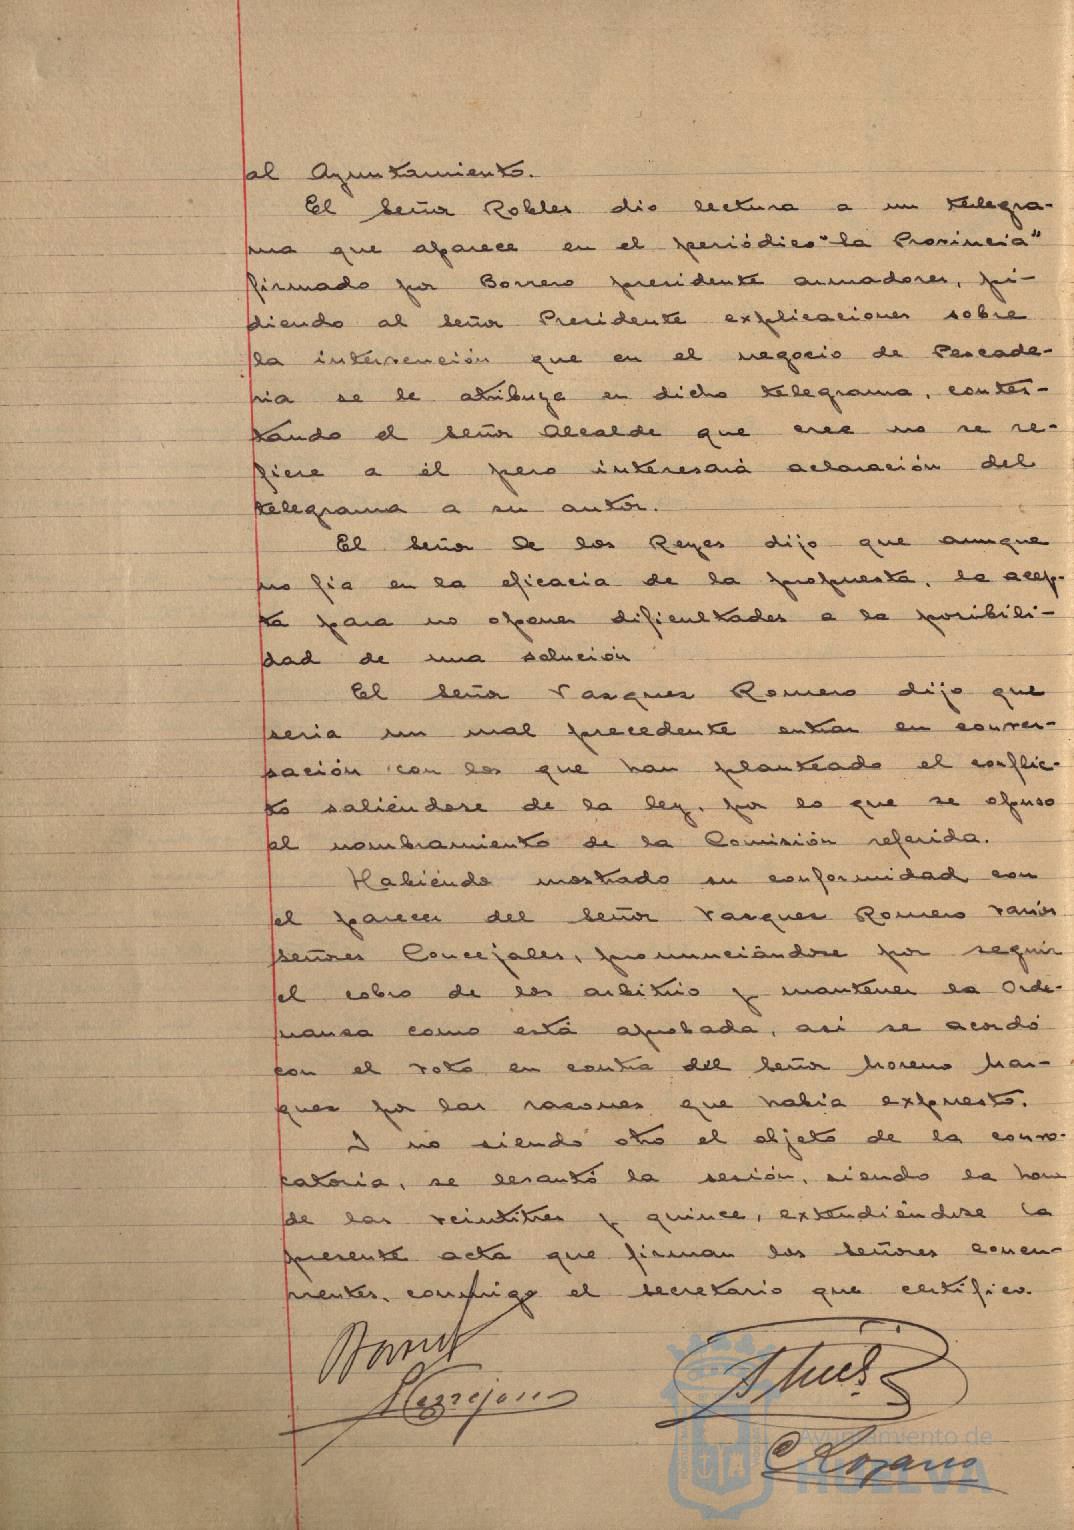 al Ayuntamiento.
El Señor Robles dio lectura a un telegra-
ma que aparece en el periódico "la Provincia"
firmado por Borrero presidente armadores, pi-
diendo al Señor Presidente explicaciones sobre
la intervención que en el negocio de Pescade-
ria se le atribuye en dicho telegrama, contes-
tando el Señor Alcalde que cree no se re-
fiere a él pero interesará aclaración del
telegrama a su autor.
El Señor de los Reyes dijo que aunque
no fia en la eficacia de la propuesta, la acep-
ta para no oponer dificultades a la posibili-
dad de una solución
El Señor Vasques Romero dijo que
seria un mal precedente entrar en conver-
sación con los que han planteado el conflic-
to saliéndose de la ley, por lo que se opuso
al nombramiento de la Comisión referida.
Habiendo mostrado su conformidad con
el parecer del Señor Vasques Romero varios
Señores Concejales, pronunciándose por seguir
el cobro de los arbitrio y mantener la Orde-
nanza como está aprobada, asi se acordó
con el voto en contra del Señor Moreno Mar-
quez por las razones que habia expuesto.
I no siendo otro el objeto de la convo-
catoria, se levantó la sesión, siendo la hora
de las veintitres y quince, extendiéndose la
presente acta que firman los Señores concu-
rrentes, conmigo el secretario que certifico.
Terrejon
C Lozano
Ayuntamiento de
HUELVA